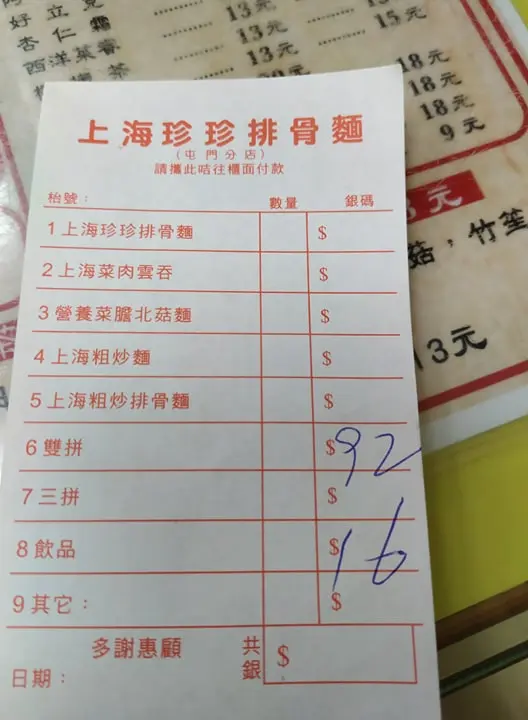 好立克
杏仁霜 13元
西洋菜蜜 13元
茶 13元
15元
18元
18元
18元
9元
元
菇，竹笙
13元
上海珍珍排骨麵
(屯門分店)
請攜此咭往櫃面付款
枱號： 數量 銀碼
1上海珍珍排骨麵 $
2上海菜肉雲吞 $
3營養菜膽北菇麵 $
4上海粗炒麵 $
5上海粗炒排骨麵 $
6雙拼 $92
7三拼 $
8飲品 $16
9其它： $
多謝惠顧 共銀 $
日期：